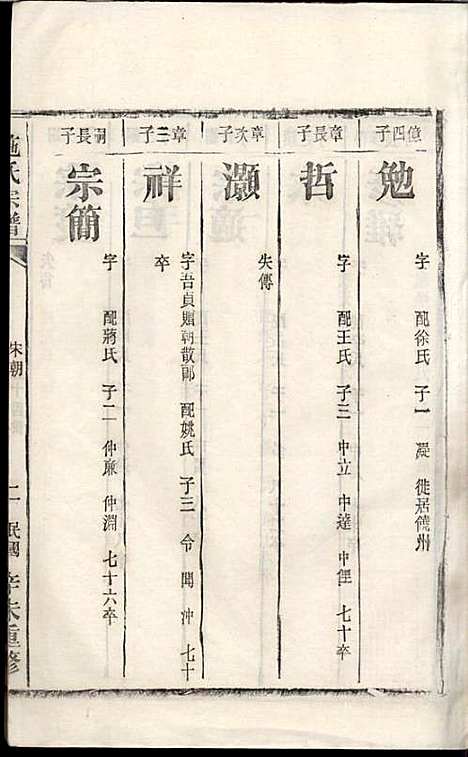 億四子
勉
字　配徐氏　子一　凝　徙居饒州
章長子
哲
字　配王氏　子三　中立　中達　中俚　七十卒
章次子
灝
失傳
章三子
祥
字吾貞贈朝散郎　配姚氏　子三　令　聞　沖　七十
卒
嗣長子
宗簡
字　配蔣氏　子二　仲廉　仲淵　七十六卒
施氏宗譜
宋朝
二
民國
辛未重修